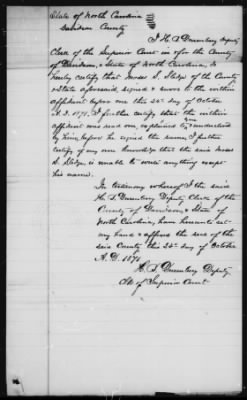 State of North Carolina
Davidson County
I H. S. Dusenbery Deputy
Clerk of the Superior Court in & for the County
of Davidson, & State of North Carolina, do
hereby certify that S. Sledge of the County
& State aforesaid, signed & swore to the within
affidavit before me this 25th day of October
A. D. 1871. I further certify that the within
affidavit was read over, explained to & understood
by him before he signed the same, I further
certify of my own knowledge that the said
S. Sledge, is unable to write anything except
his name.
In testimony whereof I the said
H. S. Dusenbery Deputy Clerk of the
County of Davidson & State of
North Carolina, have hereunto set
my hand & affixed the seal of the
said County this 25th day of October
A. D. 1871
H. S. Dusenbery Deputy
Clk of Superior Court